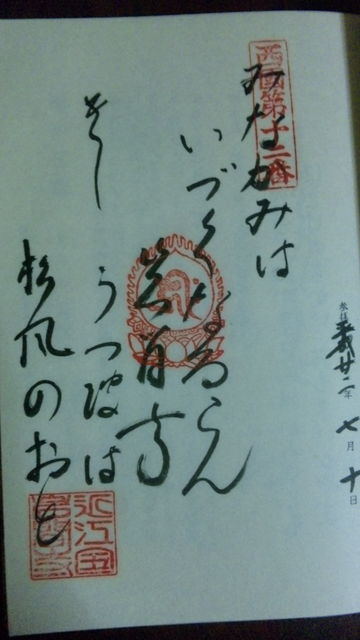 参拝 平成廿二年 七月 十日
西國第十二番
みなかみは
いづくなるらん
岩間寺
きしうつ波は
松風のおと
近江国